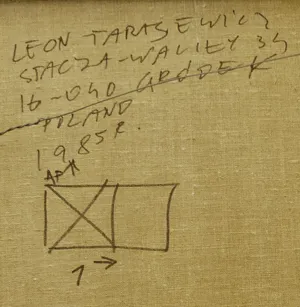 LEON TARASEWICZ
STACJA-WALIŁY 34
16-040 GRÓDEK
POLAND
1985R.
1